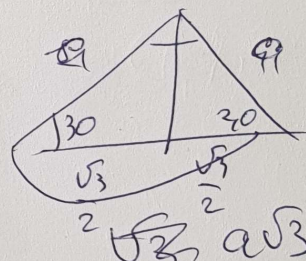 a a
30 30
√3/2 √3/2
a√3